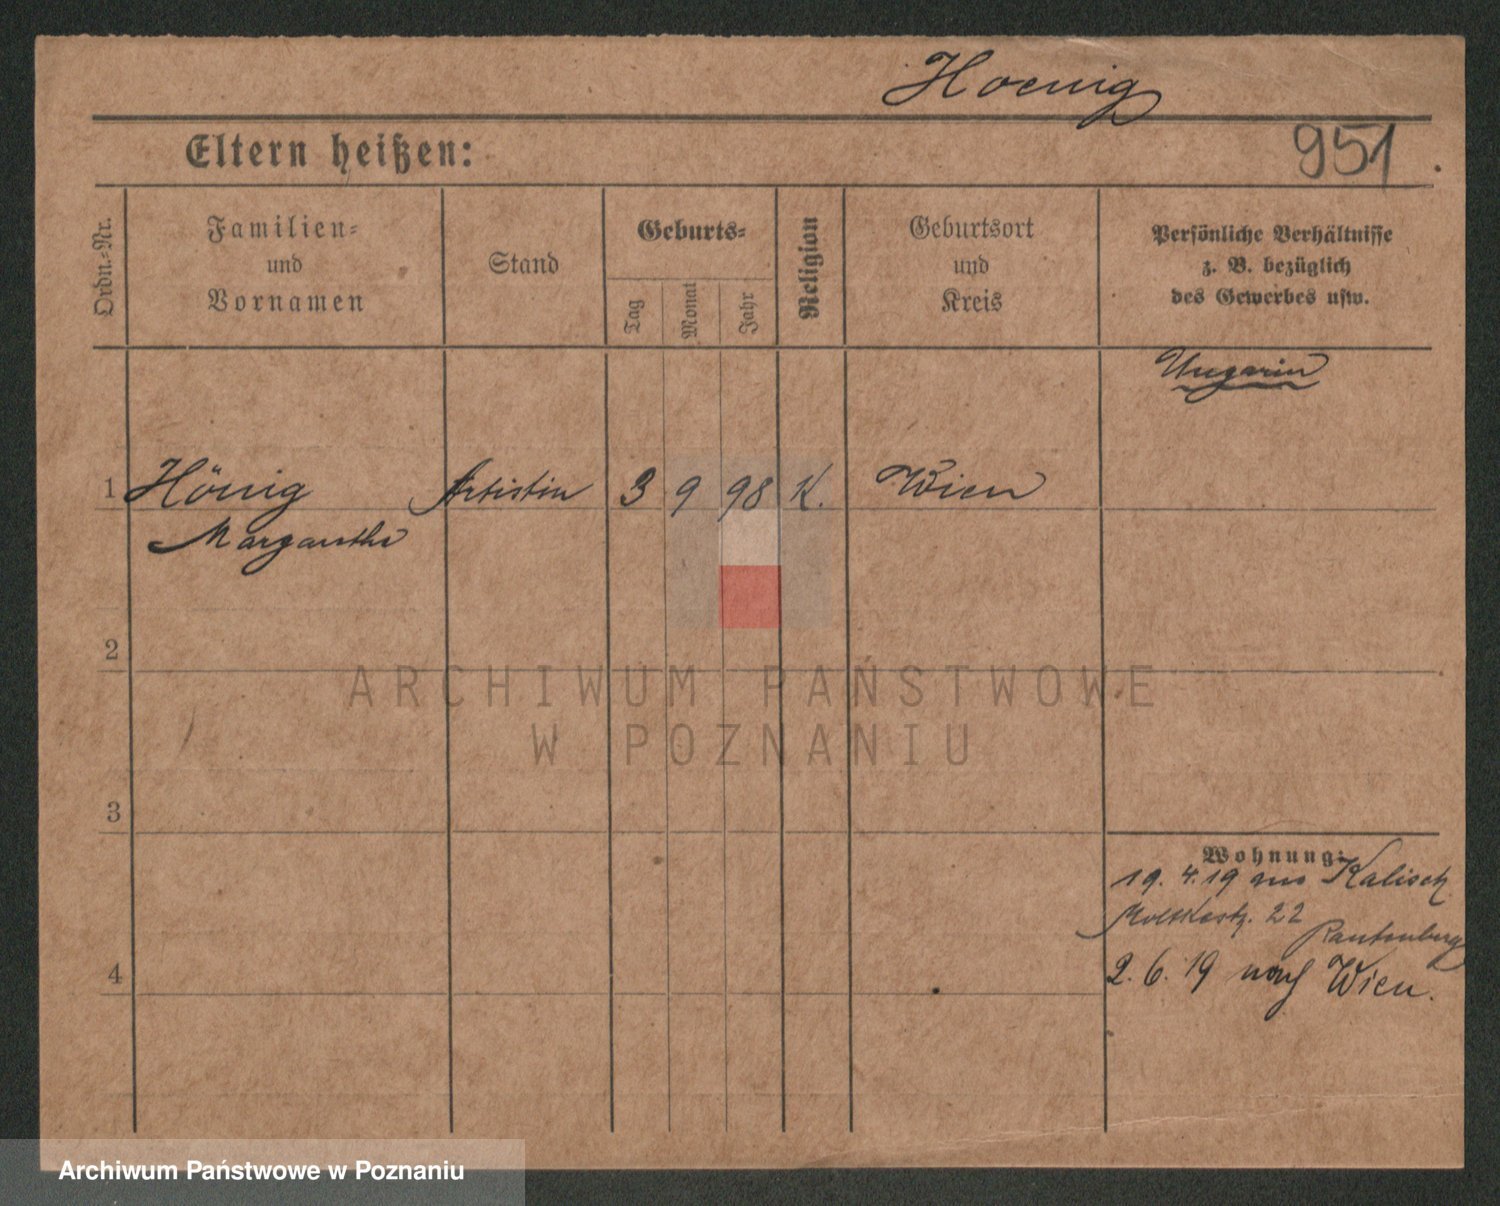 Hoenig
Eltern heißen:
951
Ordn.-Nr.
Familien-
und
Vornamen
Stand
Geburts-
Tag
Monat
Jahr
Religion
Geburtsort
und
Kreis
Persönliche Verhältnisse
z. B. bezüglich
des Gewerbes usw.
Ungarin
1 Hönig Artistin 3 9 98 K. Wien
Margarethe
2
ARCHIWUM PAŃSTWOWE
W POZNANIU
3
Wohnung:
19. 4. 19 aus Kalisch
Moltkestr. 22
Rautenberg
4
2. 6. 19 nach Wien.
Archiwum Państwowe w Poznaniu